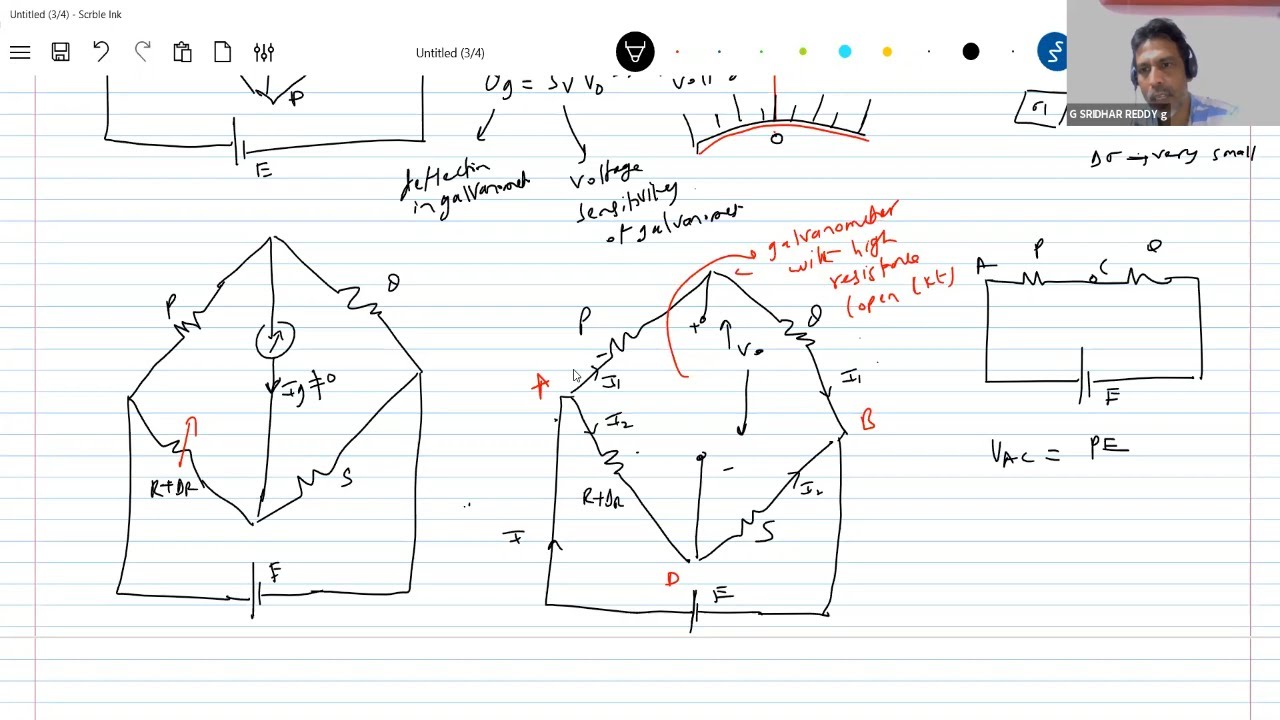 Untitled (3/4) - Scrble Ink
Untitled (3/4)
G SRIDHAR REDDY g
P
E
θg = Sv V₀
volt
0
σ1
Δσ → very small
deflection
in galvanomet
voltage
sensitivity
of galvanomet
P
Q
Ig ≠ 0
R+ΔR
S
E
galvanometer
with high
resistance
(open CKt)
P
Q
+
V₀
A
I₁
I₁
I₂
B
-
R+ΔR
I₂
S
I
D
E
A
P
C
Q
E
VAC = PE